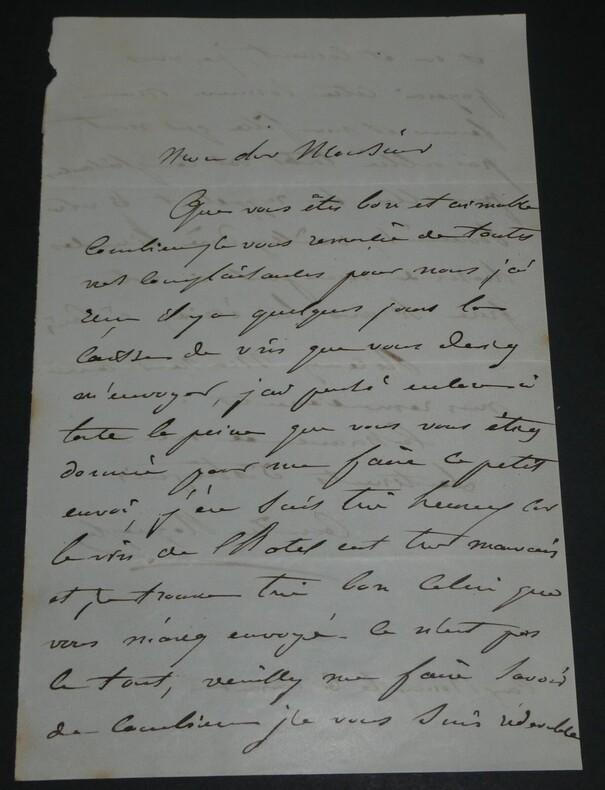 Mon cher Monsieur
Que vous êtes bon et aimable
combien je vous remercie de toutes
vos complaisances pour nous j'ai
reçu il y a quelques jours la
caisse de vin que vous deviez
m'envoyer, j'ai pensé
toute la peine que vous vous étiez
donnée pour me faire ce petit
envoi, j'en suis très heureux car
le vin de l'hotel est très mauvais
et je trouve très bon celui que
vous m'avez envoyé. ce n'est pas
le tout, veuillez me faire savoir
de combien je vous suis redevable